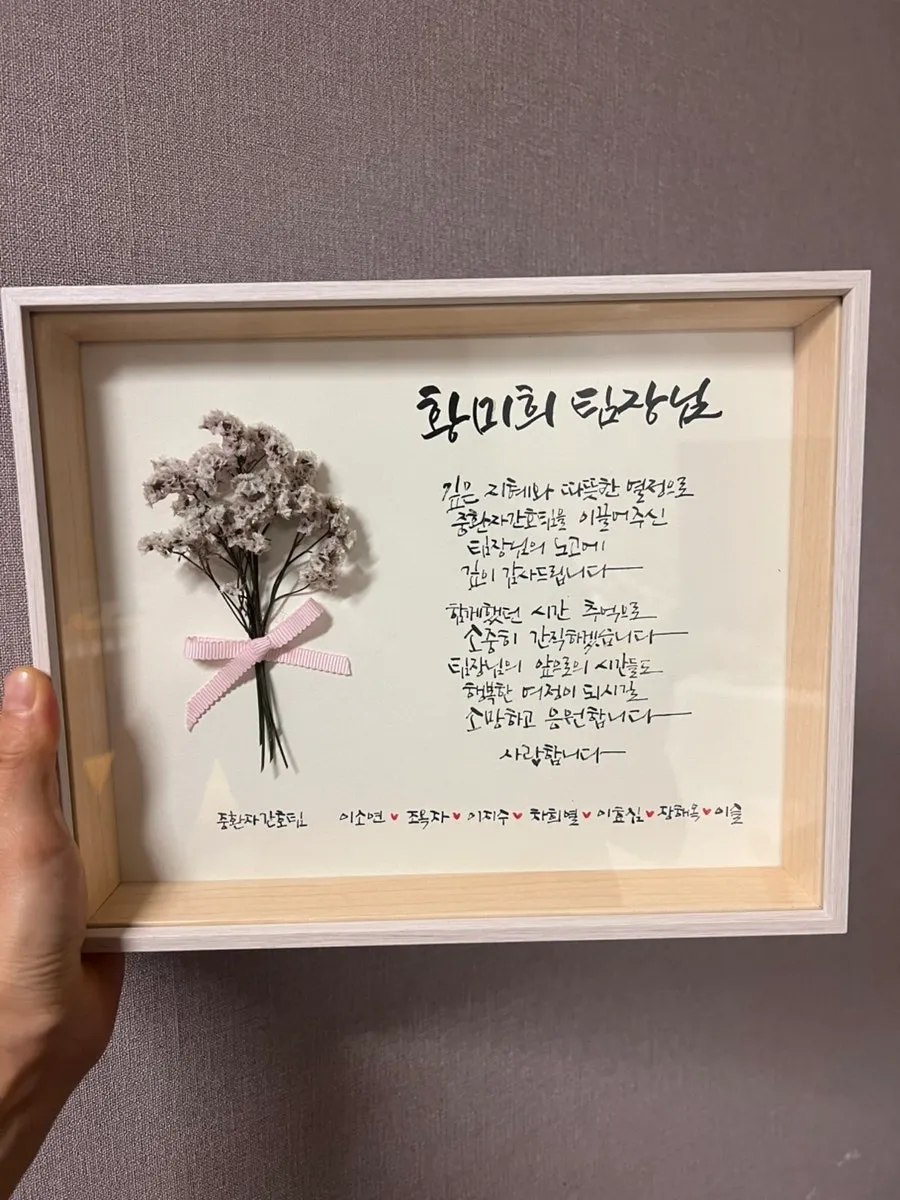 황미희 팀장님
깊은 지혜와 따뜻한 열정으로
중환자간호팀을 이끌어주신
팀장님의 노고에
깊이 감사드립니다
함께했던 시간 추억으로
소중히 간직하겠습니다
팀장님의 앞으로의 시간들도
행복한 여정이 되시길
소망하고 응원합니다
사랑합니다
중환자간호팀 이소연 ♥ 조옥자 ♥ 이지수 ♥ 차희별 ♥ 이효심 ♥ 장해옥 ♥ 이슬